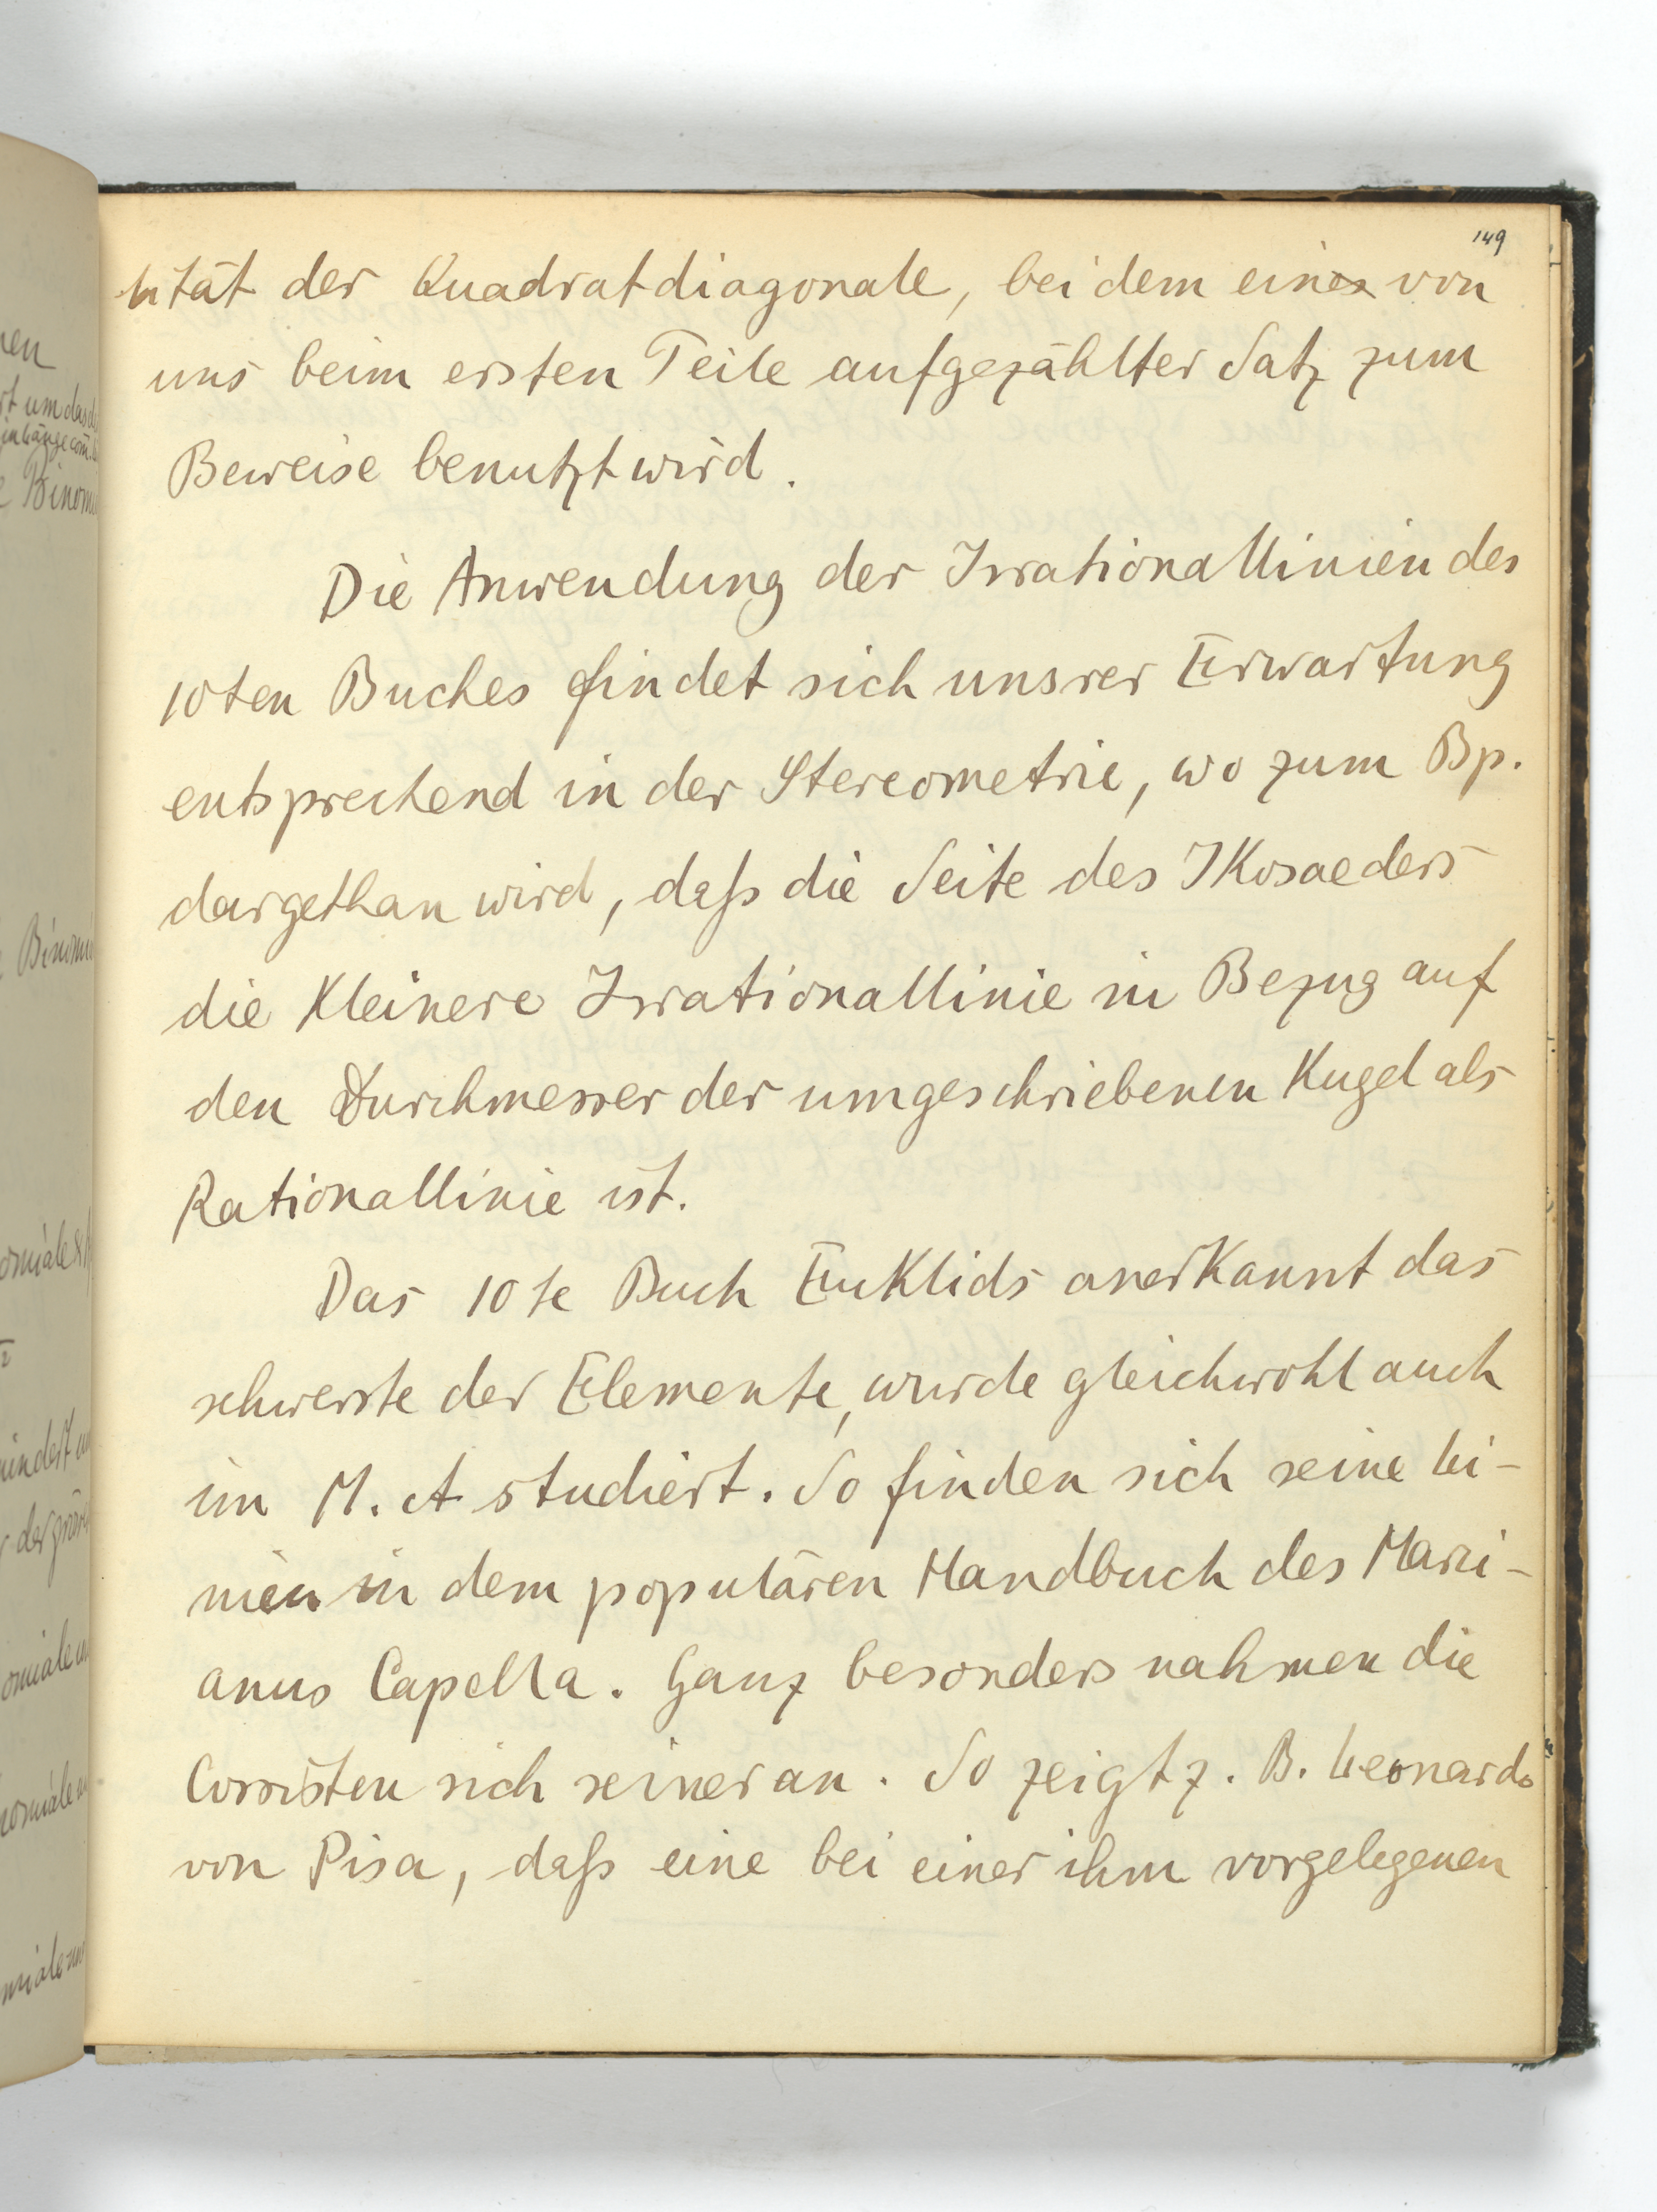 149
lität der Quadratdiagonale, bei dem ein von
uns beim ersten Teile aufgezählter Satz zum
Beweise benutzt wird.
Die Anwendung der Irrationallinien des
10ten Buches findet sich unsrer Erwartung
entsprechend in der Stereometrie, wo zum Bp.
dargethan wird, daſs die Seite des Ikosaeders
die kleinere Irrationallinie in Bezug auf
den Durchmesser der umgeschriebenen Kugel als
Rationallinie ist.
Das 10te Buch Euklids anerkannt das
schwerste der Elemente, wurde gleichwohl auch
im M. A studiert. So finden sich seine Li-
nien in dem populären Handbuch des Marci-
anus Capella. Ganz besonders nahmen die
Cossisten sich seiner an. So zeigt z. B. Leonardo
von Pisa, daſs eine bei einer ihm vorgelegenen